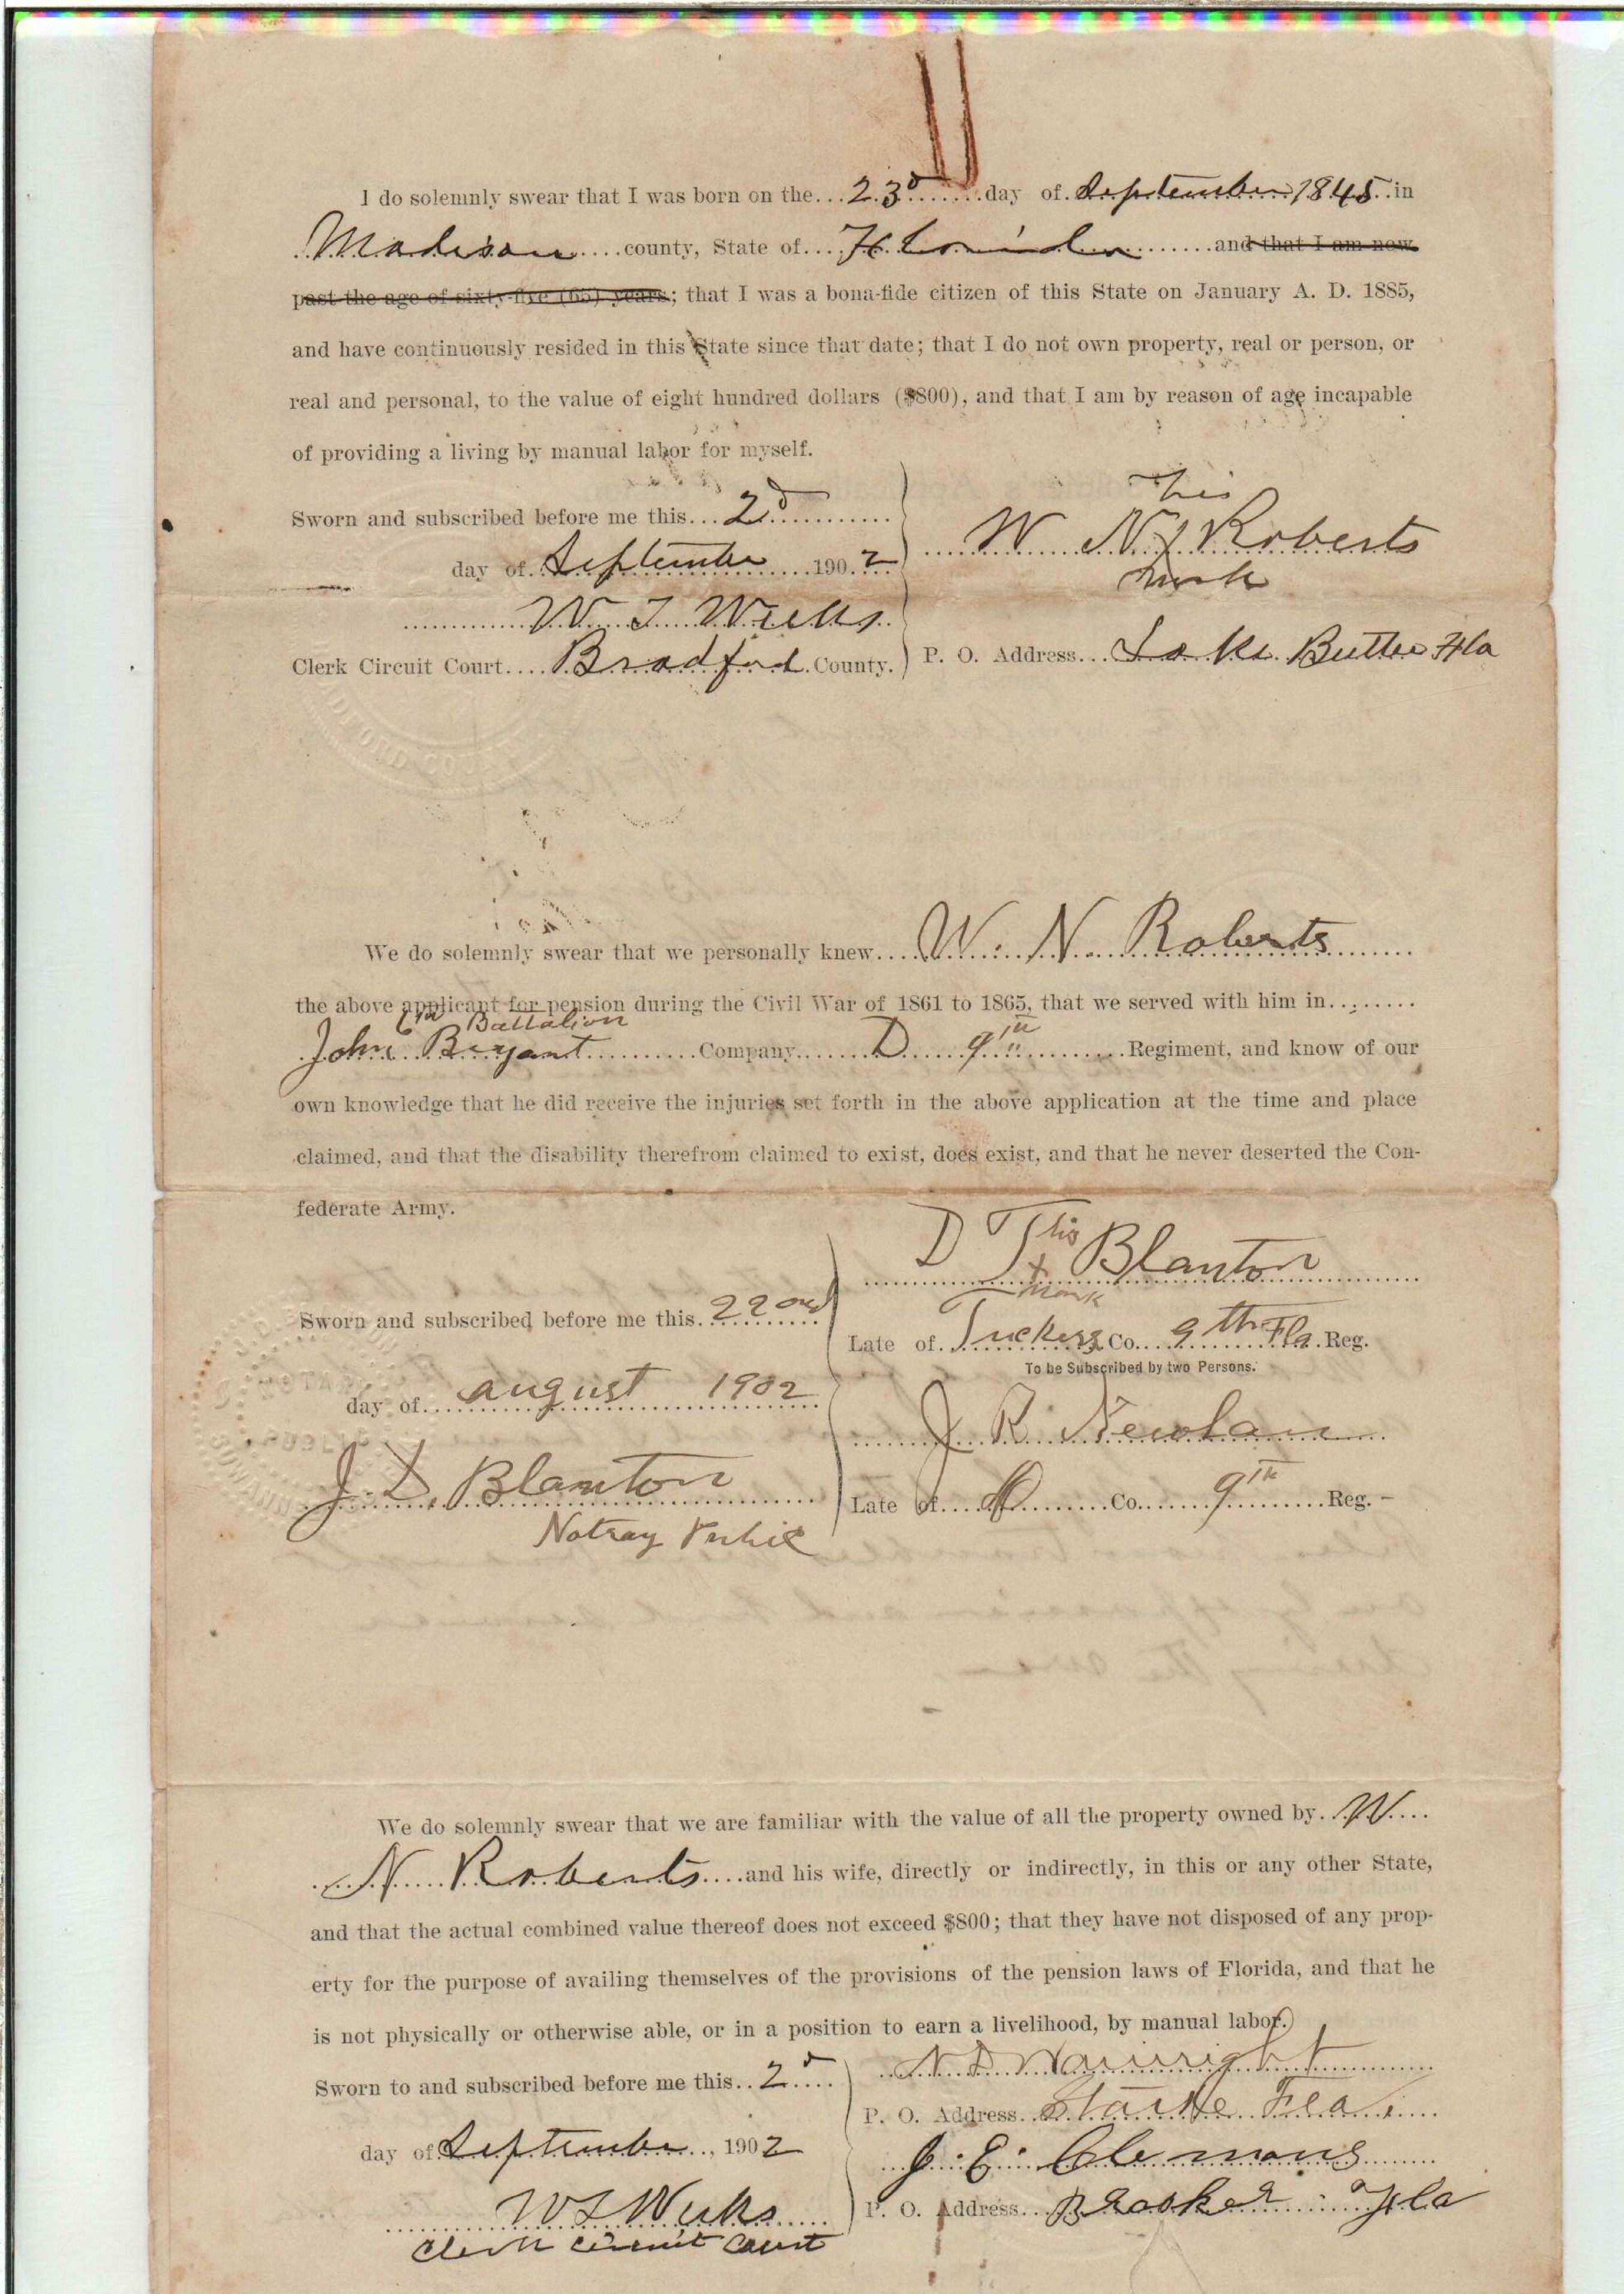 I do solemnly swear that I was born on the 23d day of September 1845 in
Madison county, State of Florida and that I am now
past the age of sixty-five (65) years; that I was a bona-fide citizen of this State on January A. D. 1885,
and have continuously resided in this State since that date; that I do not own property, real or person, or
real and personal, to the value of eight hundred dollars ($800), and that I am by reason of age incapable
of providing a living by manual labor for myself.
his
Sworn and subscribed before me this 2d
W N X Roberts
mark
day of September 1902
W. T. Weeks
Clerk Circuit Court Bradford County.
P. O. Address Lake Butler Fla
We do solemnly swear that we personally knew W. N. Roberts
the above applicant for pension during the Civil War of 1861 to 1865, that we served with him in
6th Battalion
John Bryant Company D 9th Regiment, and know of our
own knowledge that he did receive the injuries set forth in the above application at the time and place
claimed, and that the disability therefrom claimed to exist, does exist, and that he never deserted the Con-
federate Army.
his
D T X Blanton
mark
Sworn and subscribed before me this 22nd
Late of Tuckers Co. 9th Fla. Reg.
To be Subscribed by two Persons.
day of august 1902
J R Newlan
J. D. Blanton
Late of D Co. 9th Reg. -
Notray Public
We do solemnly swear that we are familiar with the value of all the property owned by W
N Roberts and his wife, directly or indirectly, in this or any other State,
and that the actual combined value thereof does not exceed $800; that they have not disposed of any prop-
erty for the purpose of availing themselves of the provisions of the pension laws of Florida, and that he
is not physically or otherwise able, or in a position to earn a livelihood, by manual labor.
Sworn to and subscribed before me this 2d
N. D Wainwright
P. O. Address Starke Fla.
day of September, 1902
J. E. Clemons
W T Weeks
P. O. Address Brooker Fla
Clerk Circuit Court